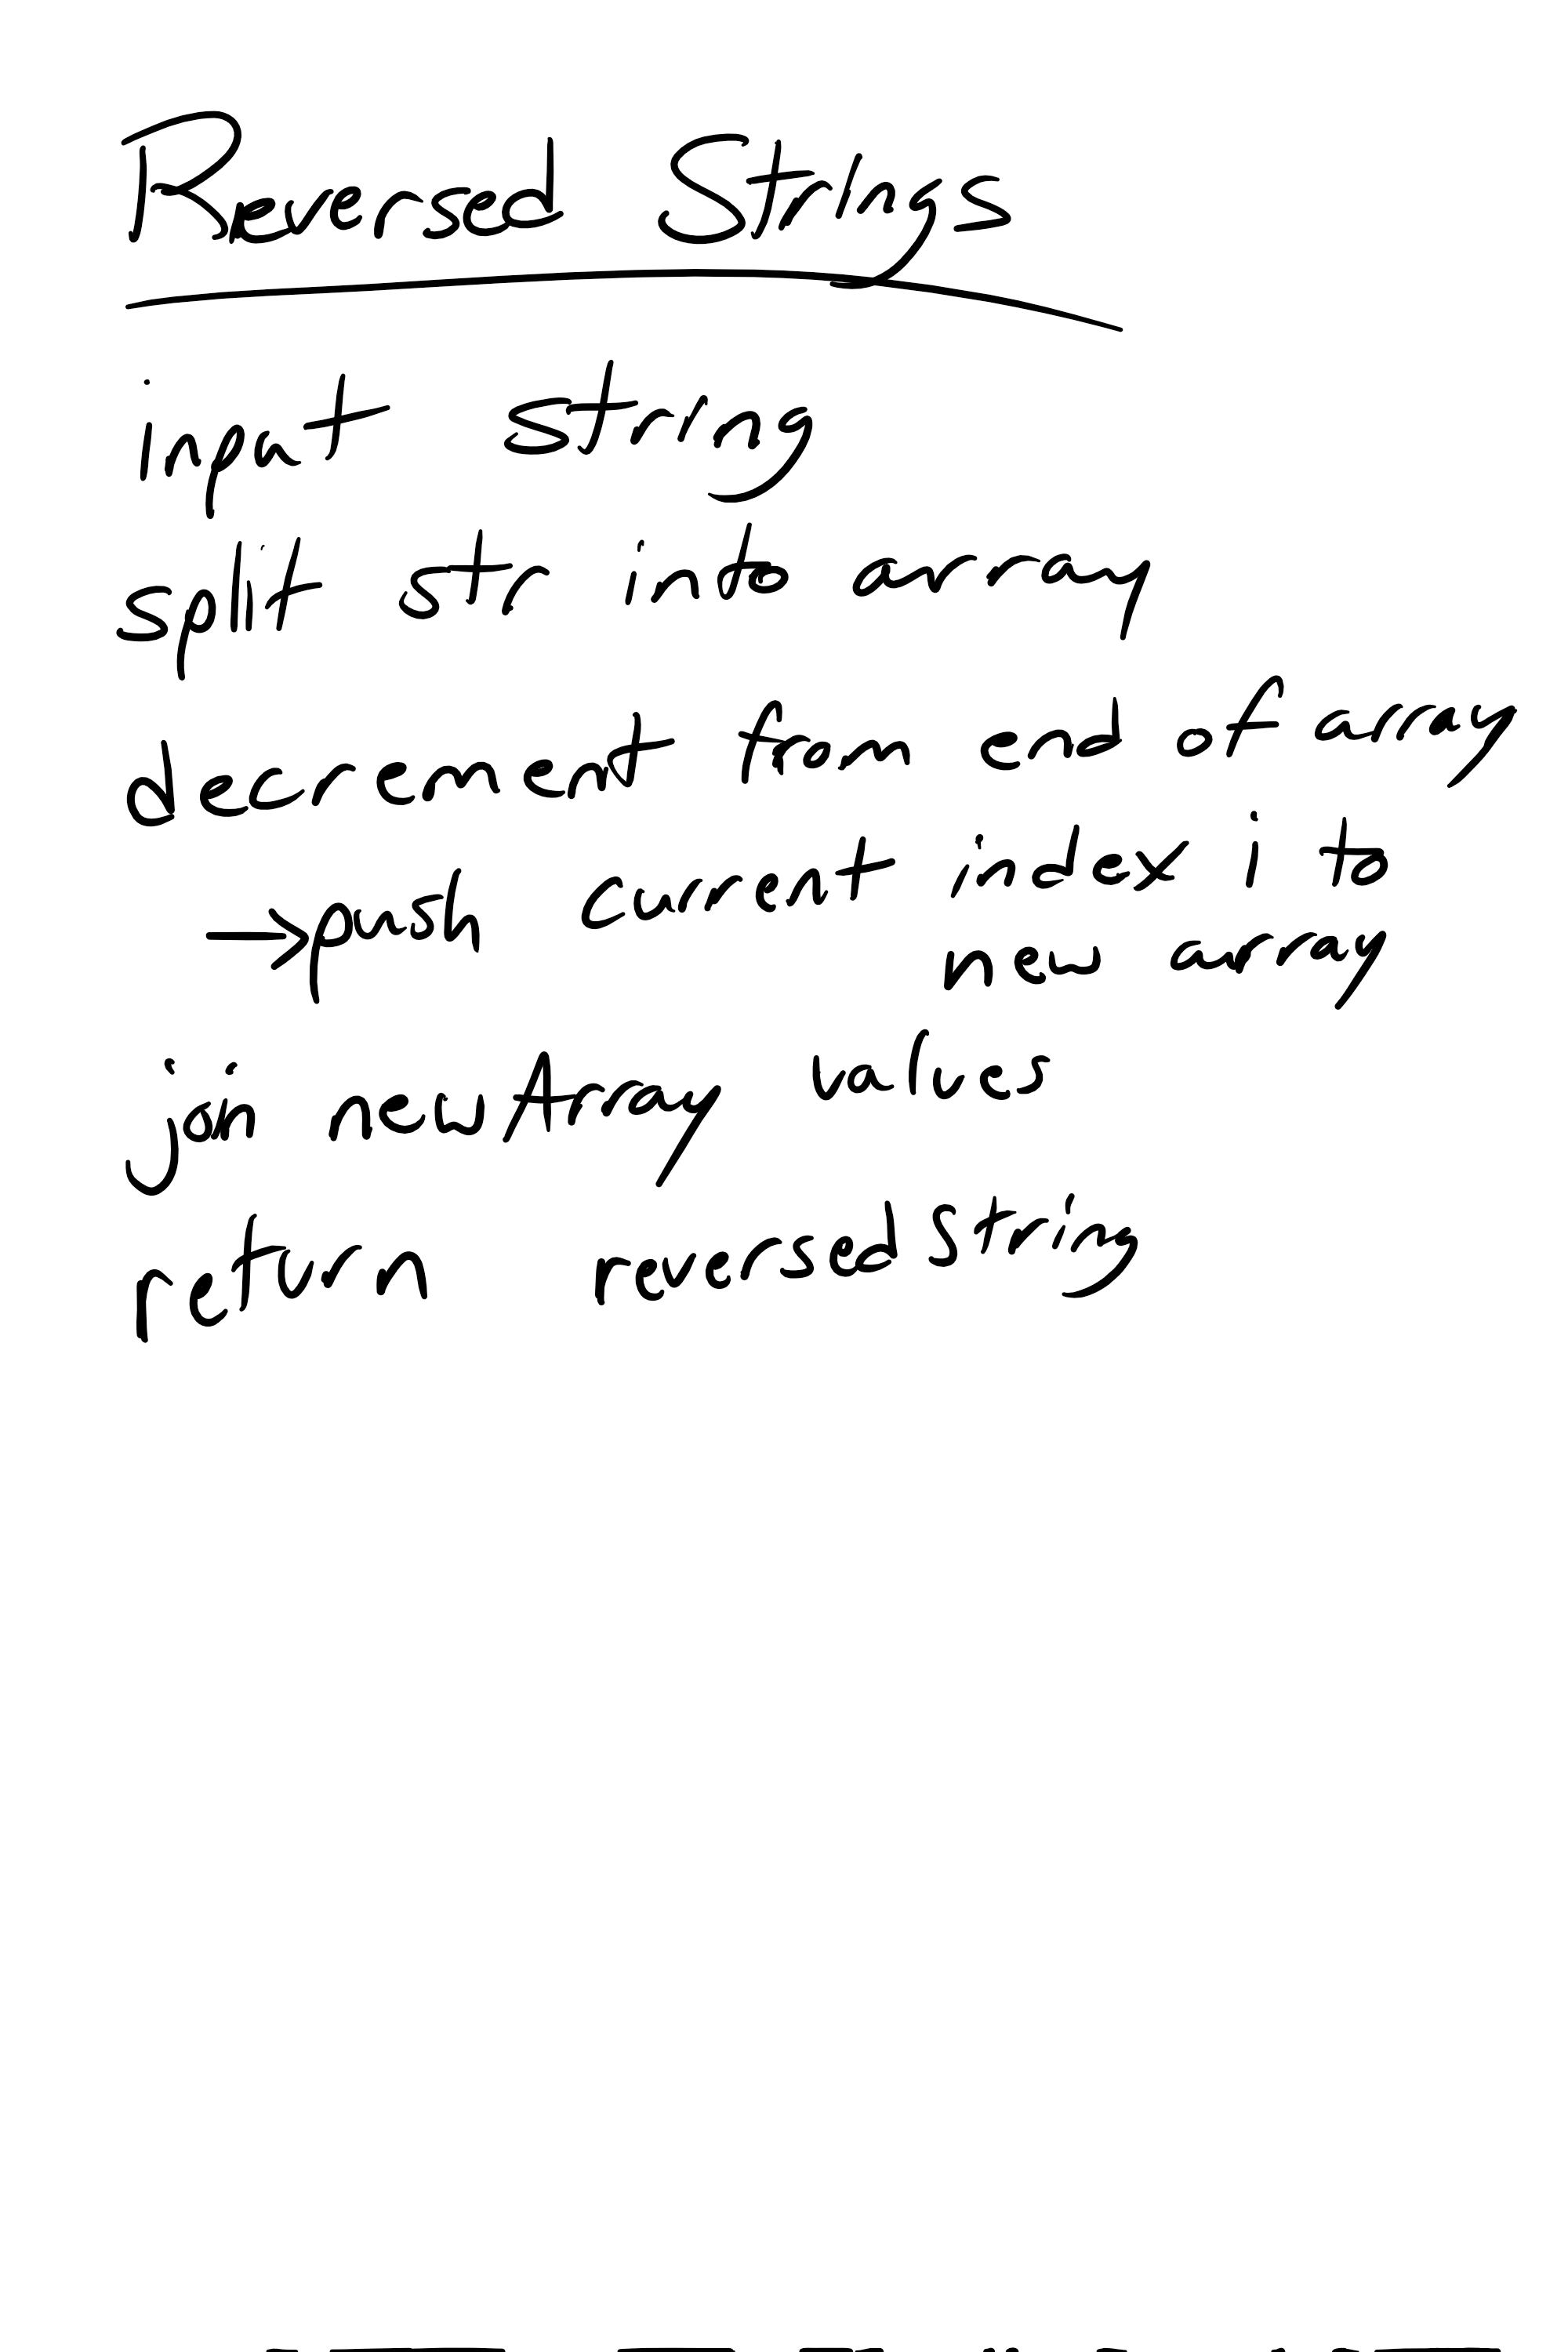 Reversed Strings
input string
split str into array
decrement from end of array
→push current index i to
new array
join newArray values
return reversedString